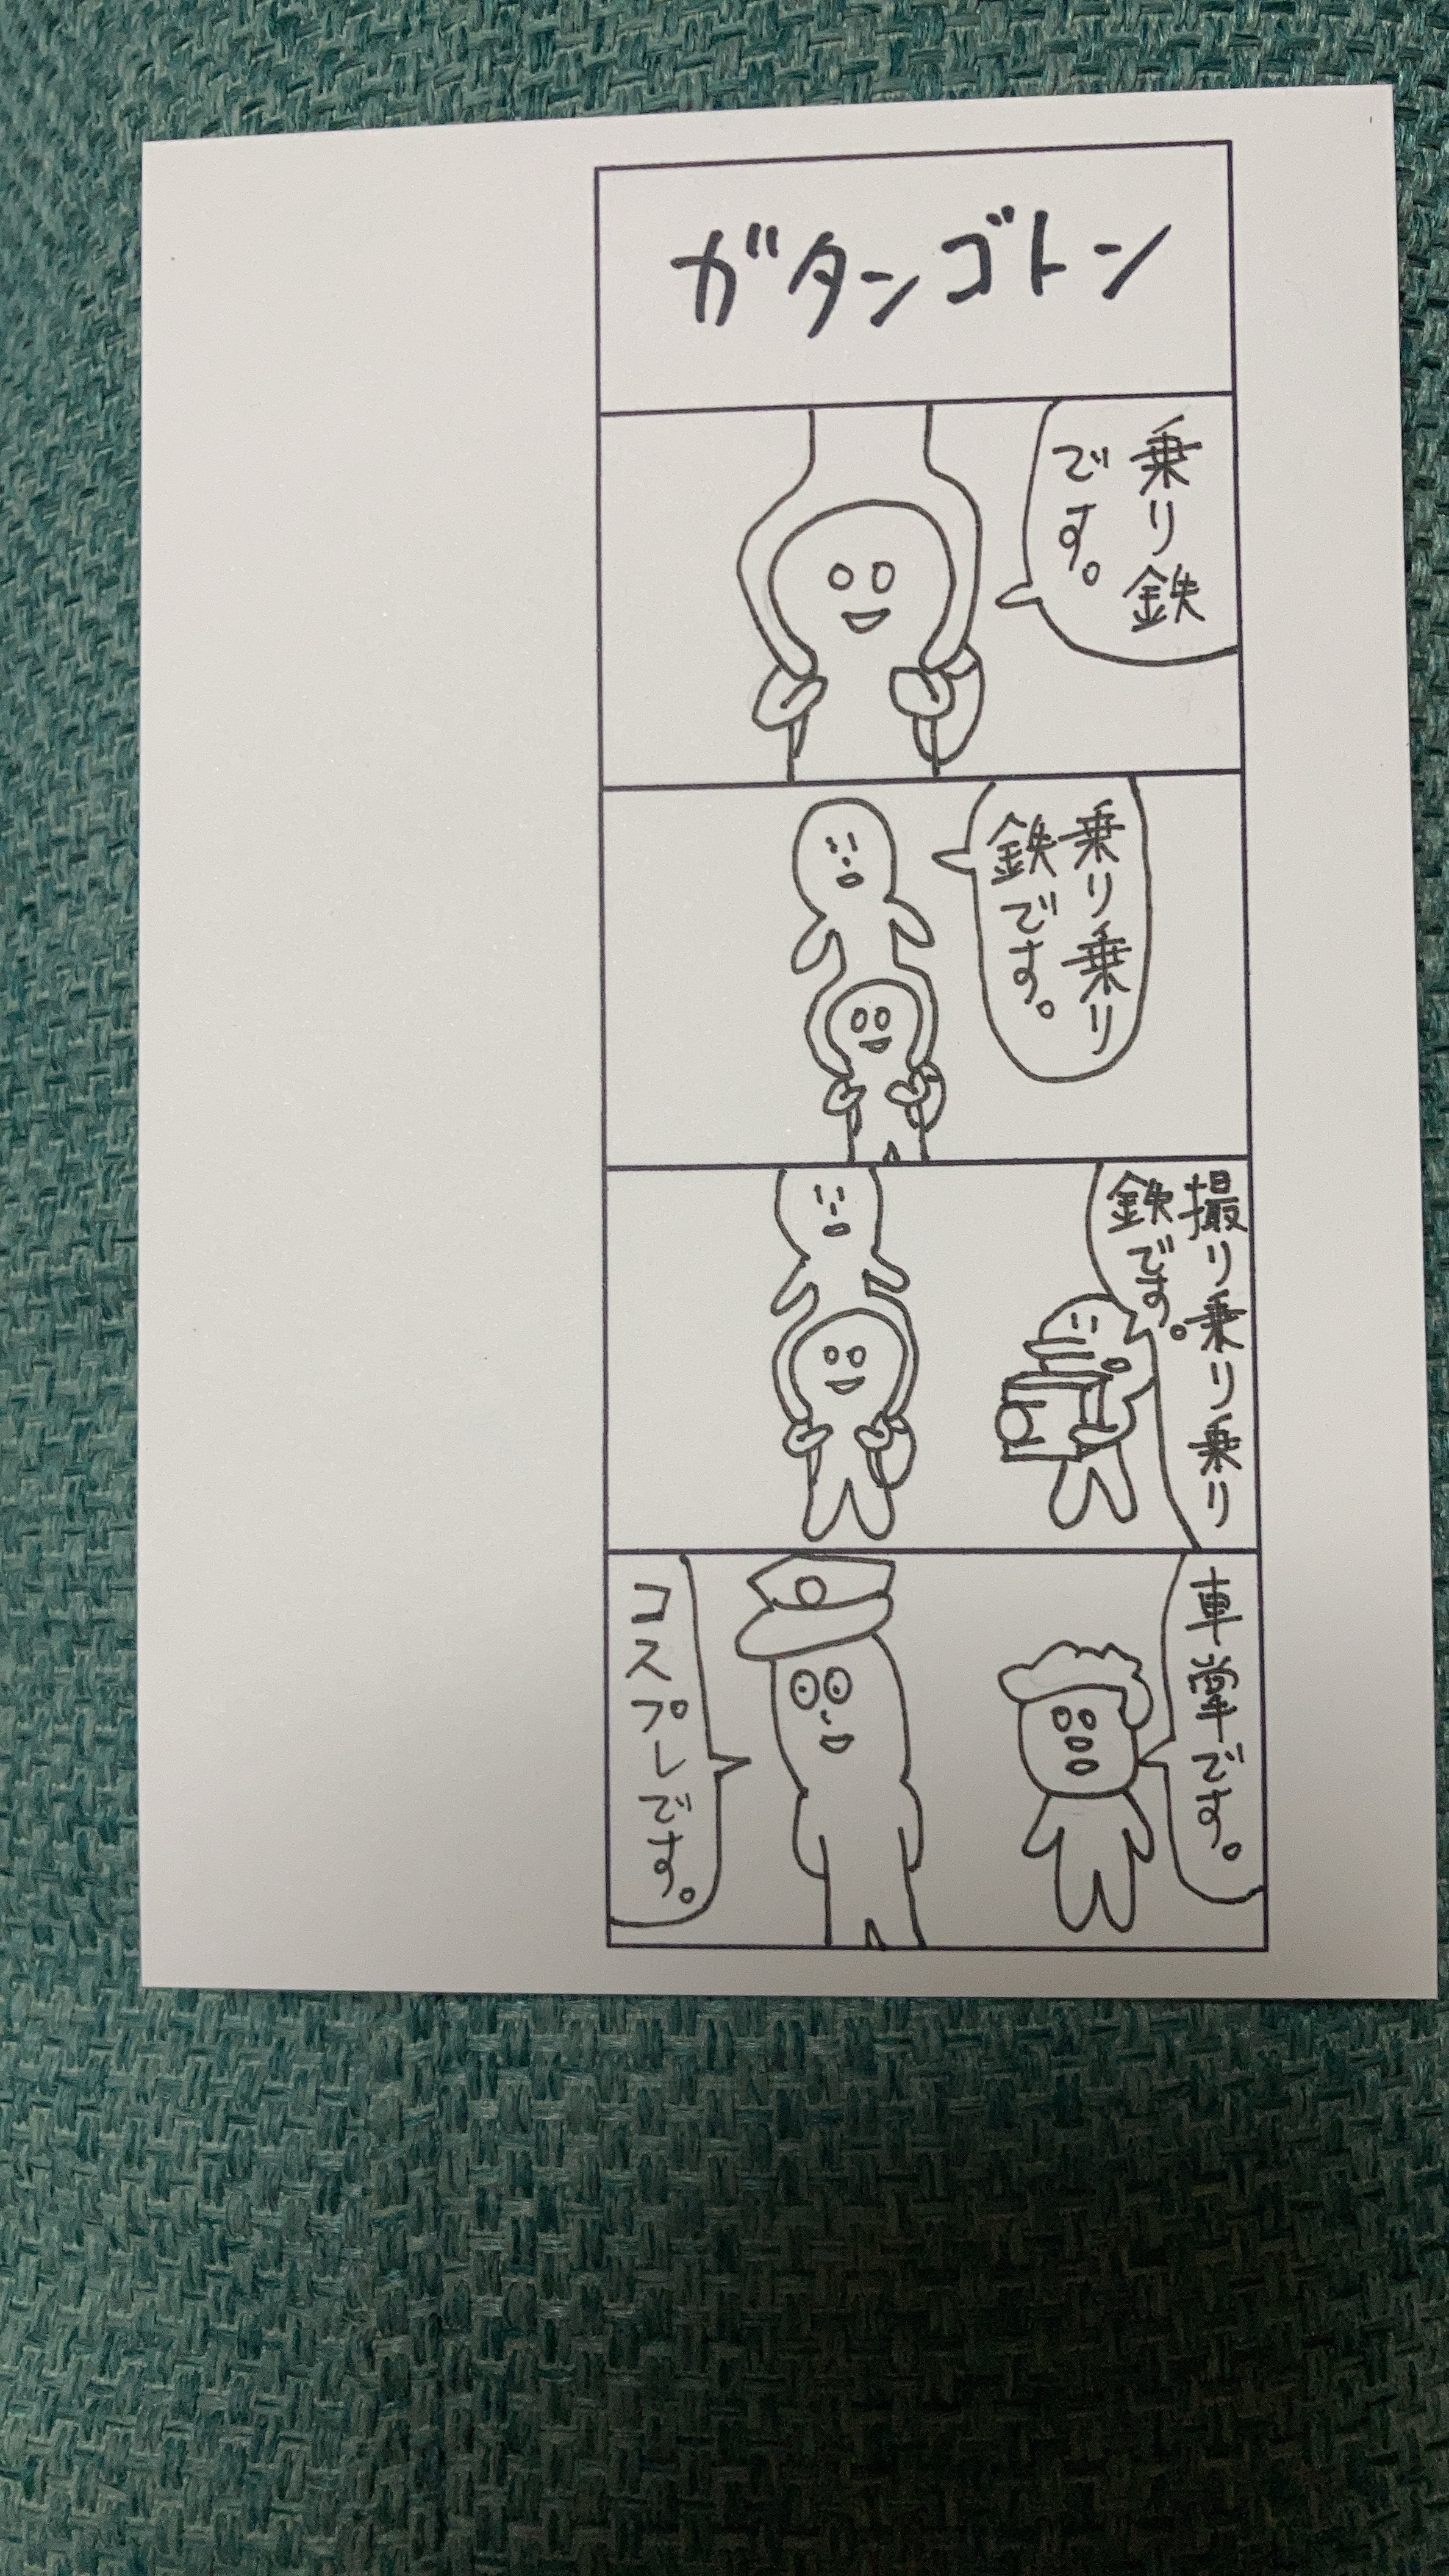 ガタンゴトン
乗り鉄
です。
乗り乗り
鉄です。
撮り乗り乗り
鉄です。
車掌です。
コスプレです。